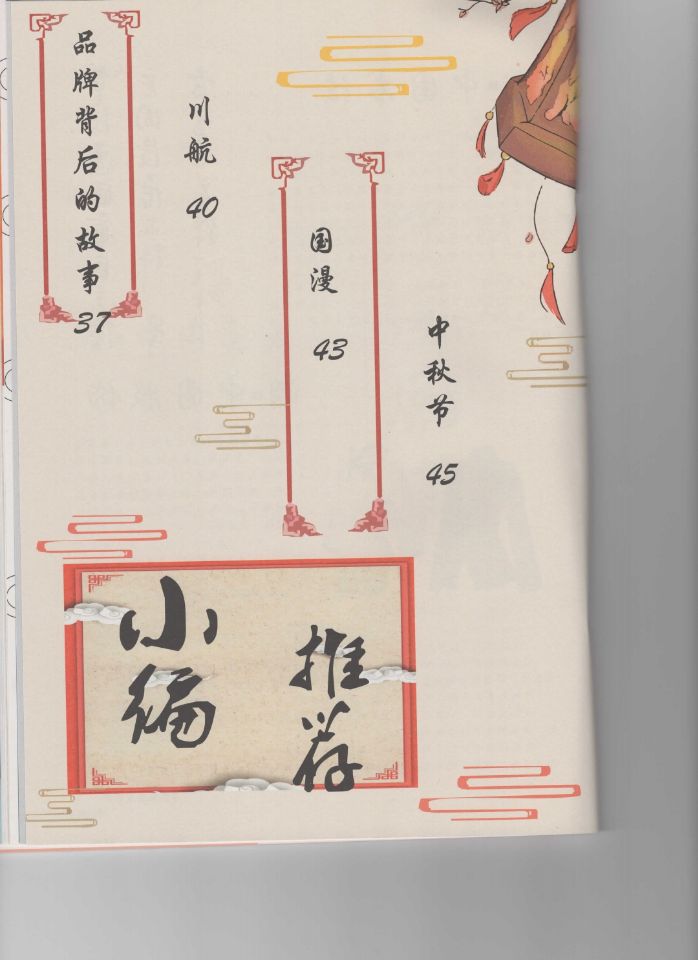 品牌背后的故事
37
川航
40
国漫
43
中秋节
45
小编
推荐